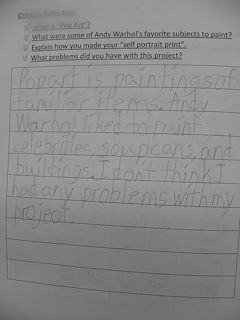 Critique/Reflection:
What is "Pop Art"?
What were some of Andy Warhol's favorite subjects to paint?
Explain how you made your "self portrait print".
What problems did you have with this project?
Pop art is paintings of
familiar items. Andy
Warhol liked to paint
celebrities, soup cans, and
buildings. I don't think I
had any problems with my
project.